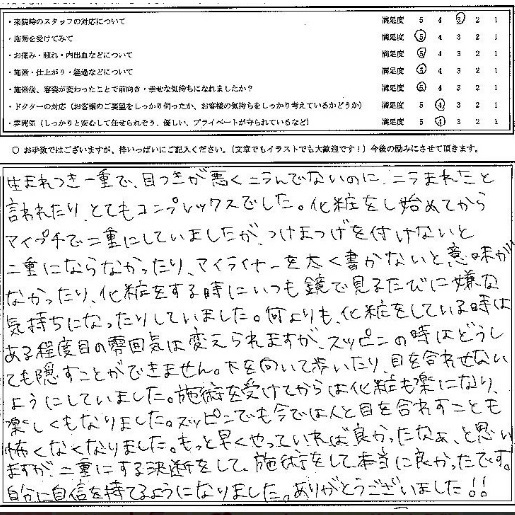 ・来院時のスタッフの対応について 満足度 5 4 3 2 1
・施術を受けてみて 満足度 5 4 3 2 1
・お痛み・腫れ・内出血などについて 満足度 5 4 3 2 1
・施術・仕上がり・経過などについて 満足度 5 4 3 2 1
・施術後、容姿が変わったことで前向き・幸せな気持ちになれましたか? 満足度 5 4 3 2 1
・ドクターの対応(お客様のご要望をしっかり伺ったか、お客様の気持ちをしっかり考えているかどうか) 満足度 5 4 3 2 1
・雰囲気(しっかりと安心して任せられそう、優しい、プライベートが守られているなど) 満足度 5 4 3 2 1
○ お手数ではございますが、枠いっぱいにご記入ください。(文章でもイラストでも大歓迎です!)今後の励みにさせて頂きます。
生まれつき一重で、目つきが悪くニラんでないのに、ニラまれたと
言われたり、とてもコンプレックスでした。化粧をし始めてから
アイプチで二重にしていましたが、つけまつげを付けないと
二重にならなかったり、アイライナーを太く書かないと意味が
なかったり、化粧をする時にいつも鏡で見るたびに嫌な
気持ちになったりしていました。何よりも、化粧をしている時は
ある程度目の雰囲気は変えられますが、スッピンの時はどうし
ても隠すことができません。下を向いて歩いたり、目を合わせない
ようにしていました。施術を受けてからは化粧も楽になり、
楽しくもなりました。スッピンでも今では人と目を合わすことも
怖くなくなりました。もっと早くやっていれば良かったなぁ、と思い
ますが、二重にする決断をして、施術をして本当に良かったです。
自分に自信を持てるようになりました。ありがとうございました!!